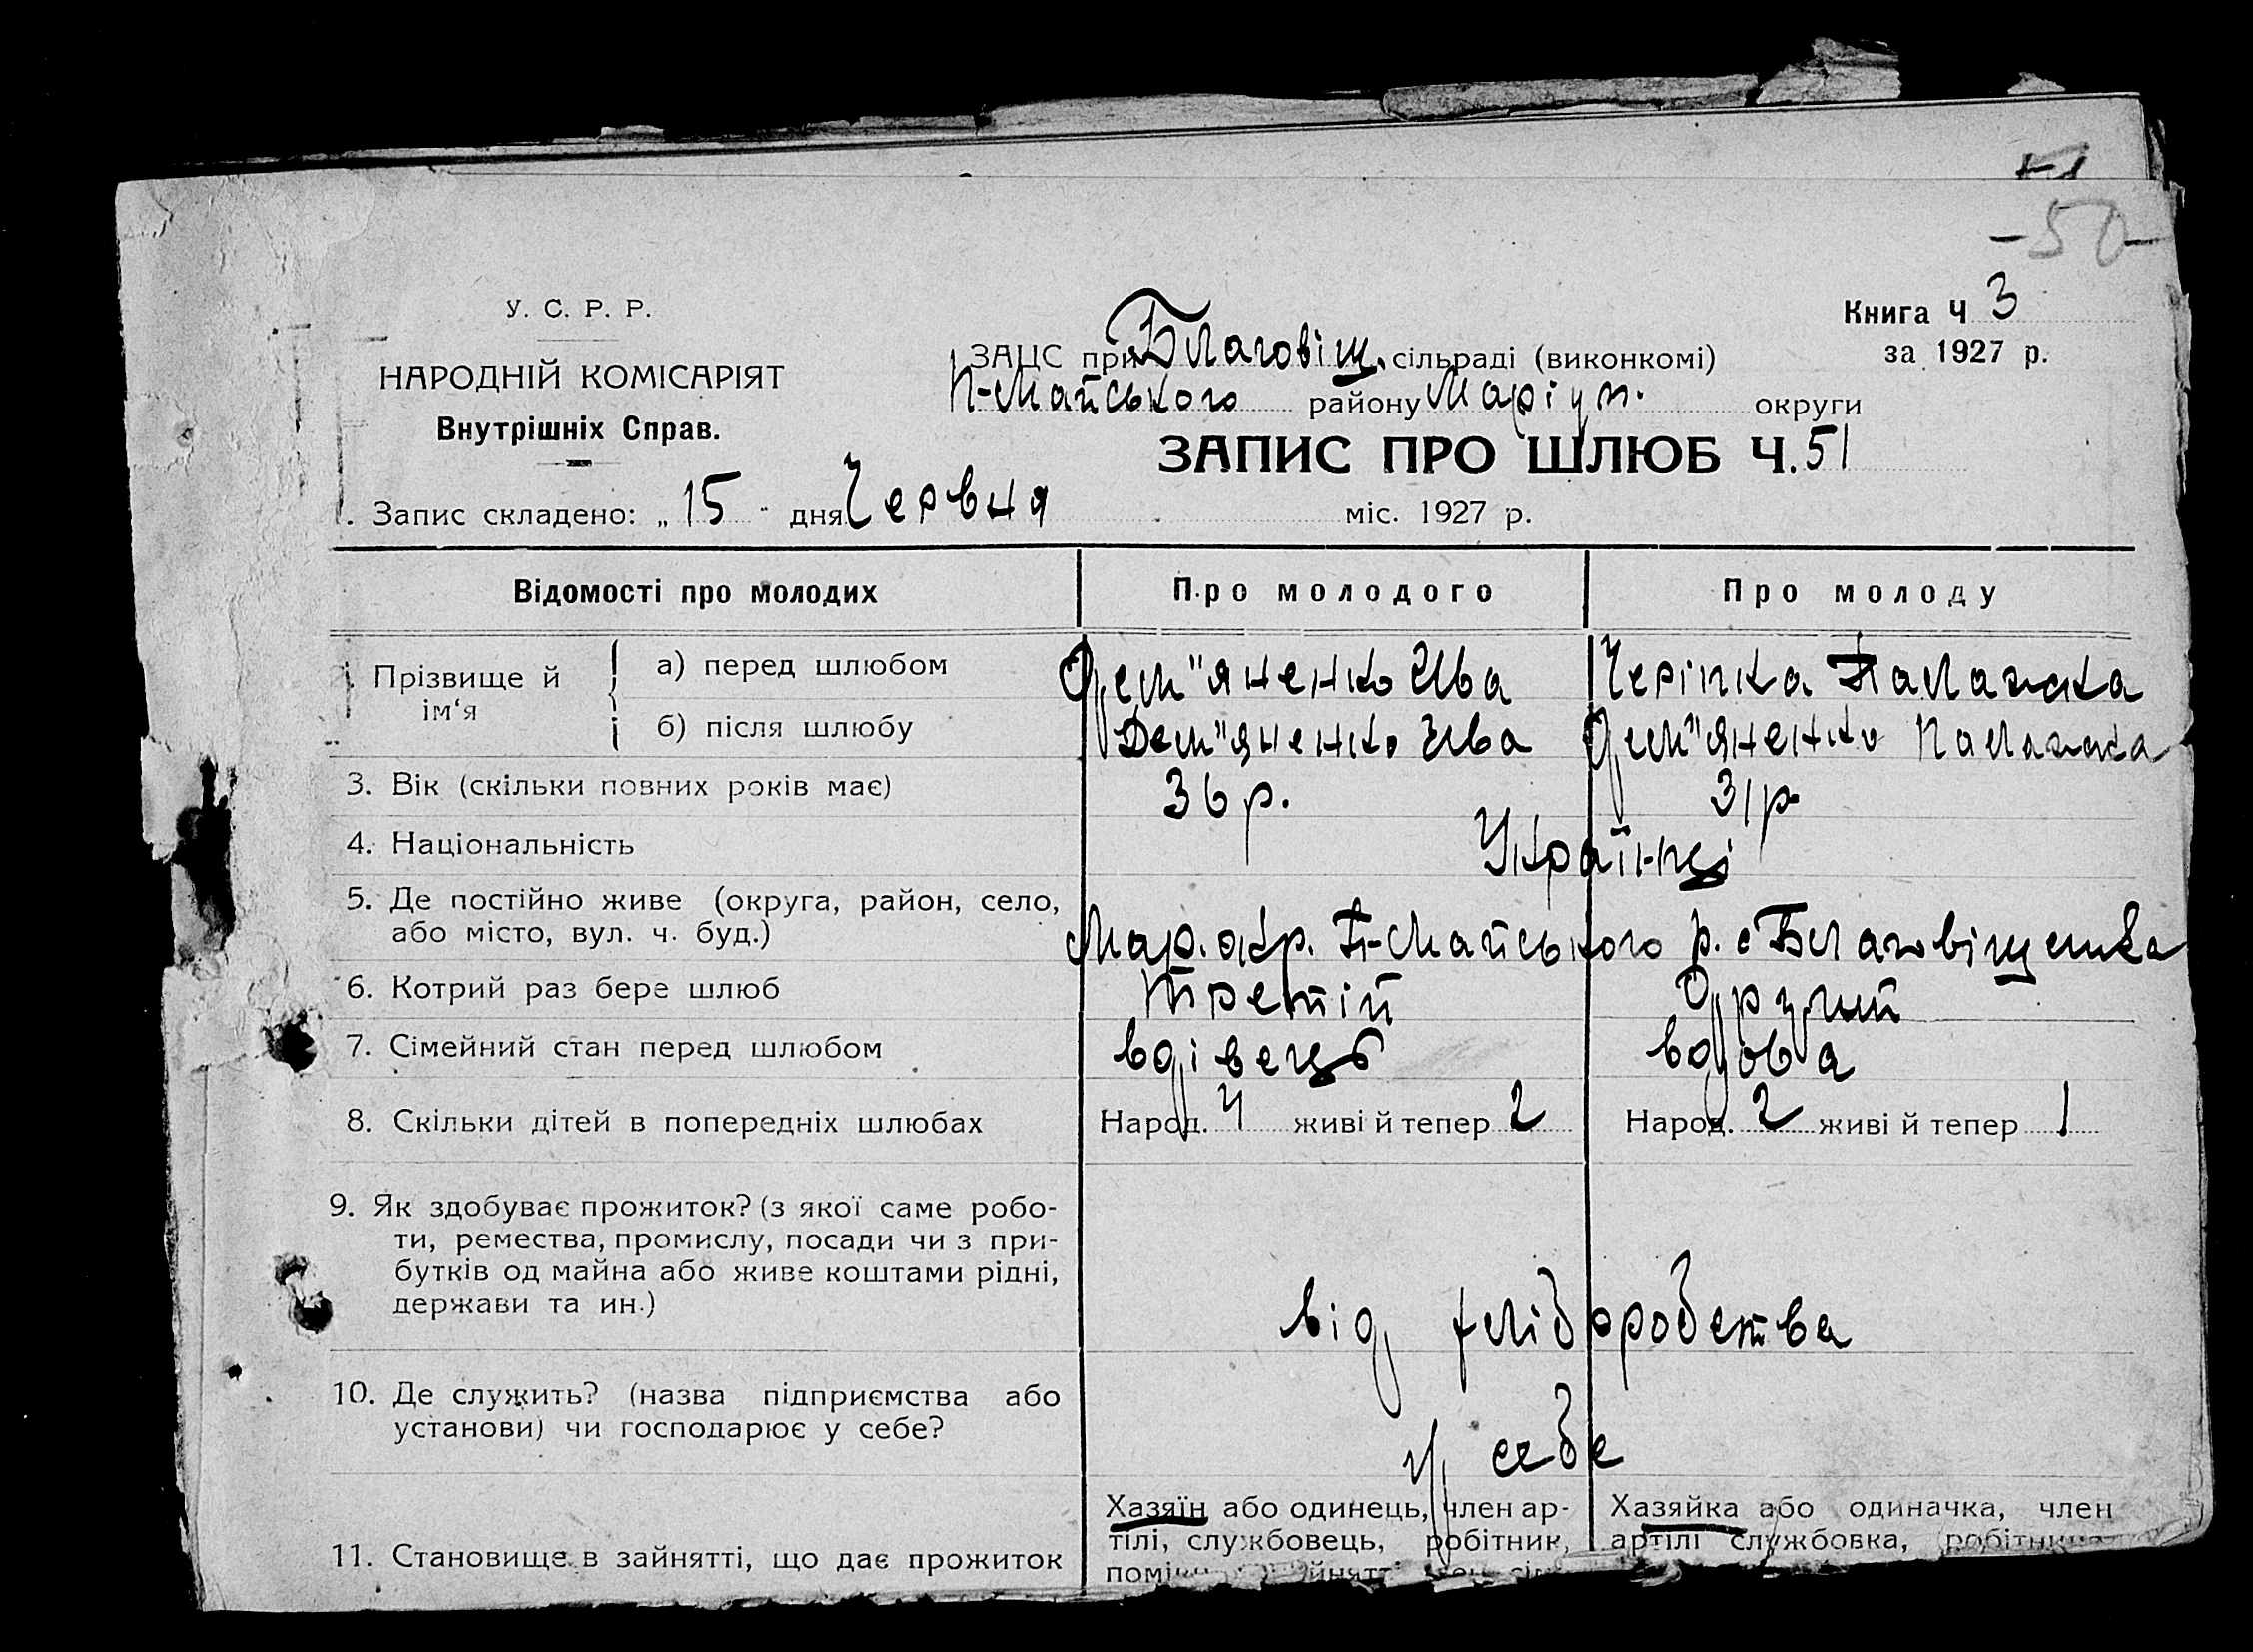 51
-50-
У. С. Р. Р.
НАРОДНІЙ КОМІСАРІЯТ
Внутрішніх Справ.
Книга Ч 3
за 1927 р.
ЗАЦС при Благовіщ. сільраді (виконкомі)
П-Майського району Маріуп. округи
ЗАПИС ПРО ШЛЮБ Ч. 51
. Запис складено: „ 15 " дня Червня міс. 1927 р.
Відомості про молодих Про молодого Про молоду
Прізвище й ім‘я а) перед шлюбом Дем"яненко Ива Черіпка Палажка
б) після шлюбу Дем"яненко Ива Дем"яненко Палажка
3. Вік (скільки повних років має) 36 р. 31 р.
4. Національність Українці
5. Де постійно живе (округа, район, село,
або місто, вул. ч. буд.) Мар. окр. П-Майського р. с Благовіщенка
6. Котрий раз бере шлюб Третій Другий
7. Сімейний стан перед шлюбом вдівець вдова
8. Скільки дітей в попередніх шлюбах Народ. 4 живі й тепер 2 Народ. 2 живі й тепер 1
9. Як здобуває прожиток? (з якої саме робо-
ти, ремества, промислу, посади чи з при-
бутків од майна або живе коштами рідні,
держави та ин.) від хліборобства
10. Де служить? (назва підприємства або
установи) чи господарює у себе? у себе
11. Становище в зайнятті, що дає прожиток
Хазяїн або одинець, член ар-
тілі, службовець, робітник,
Хазяйка або одиначка, член
артілі службовка, робітниця